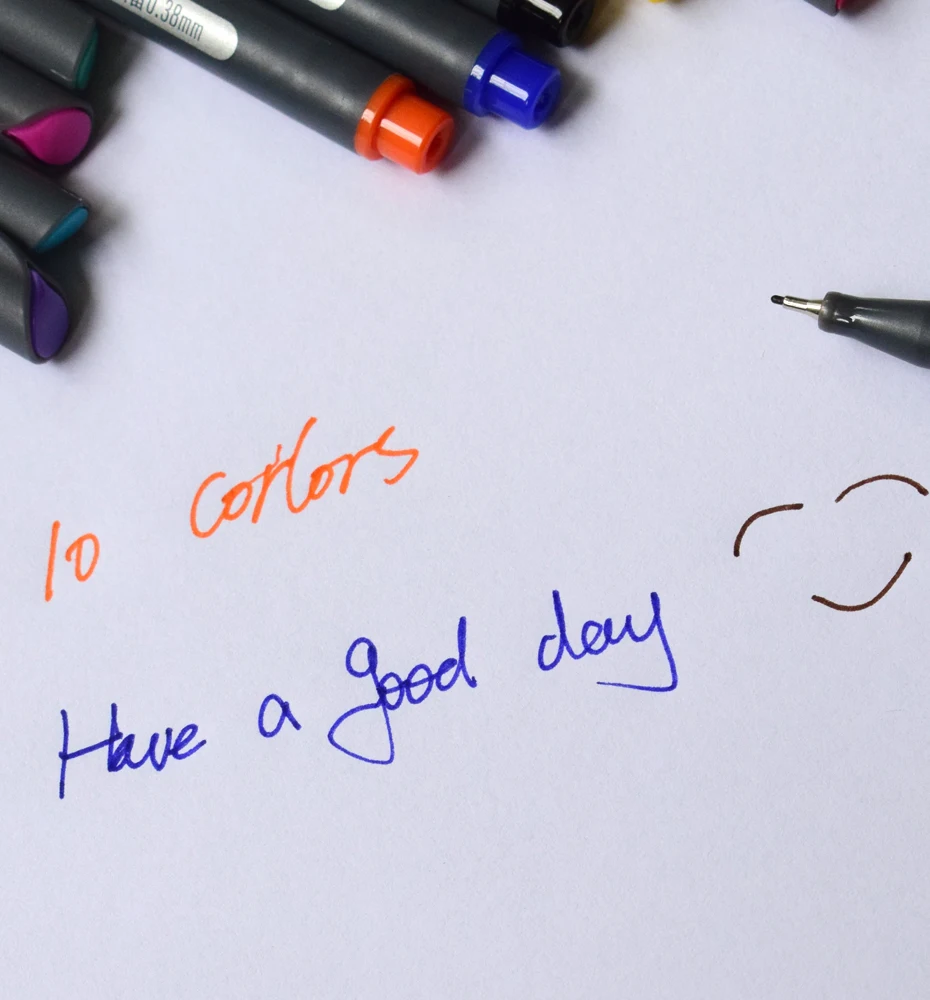 0.38mm
10 colors
Have a good day